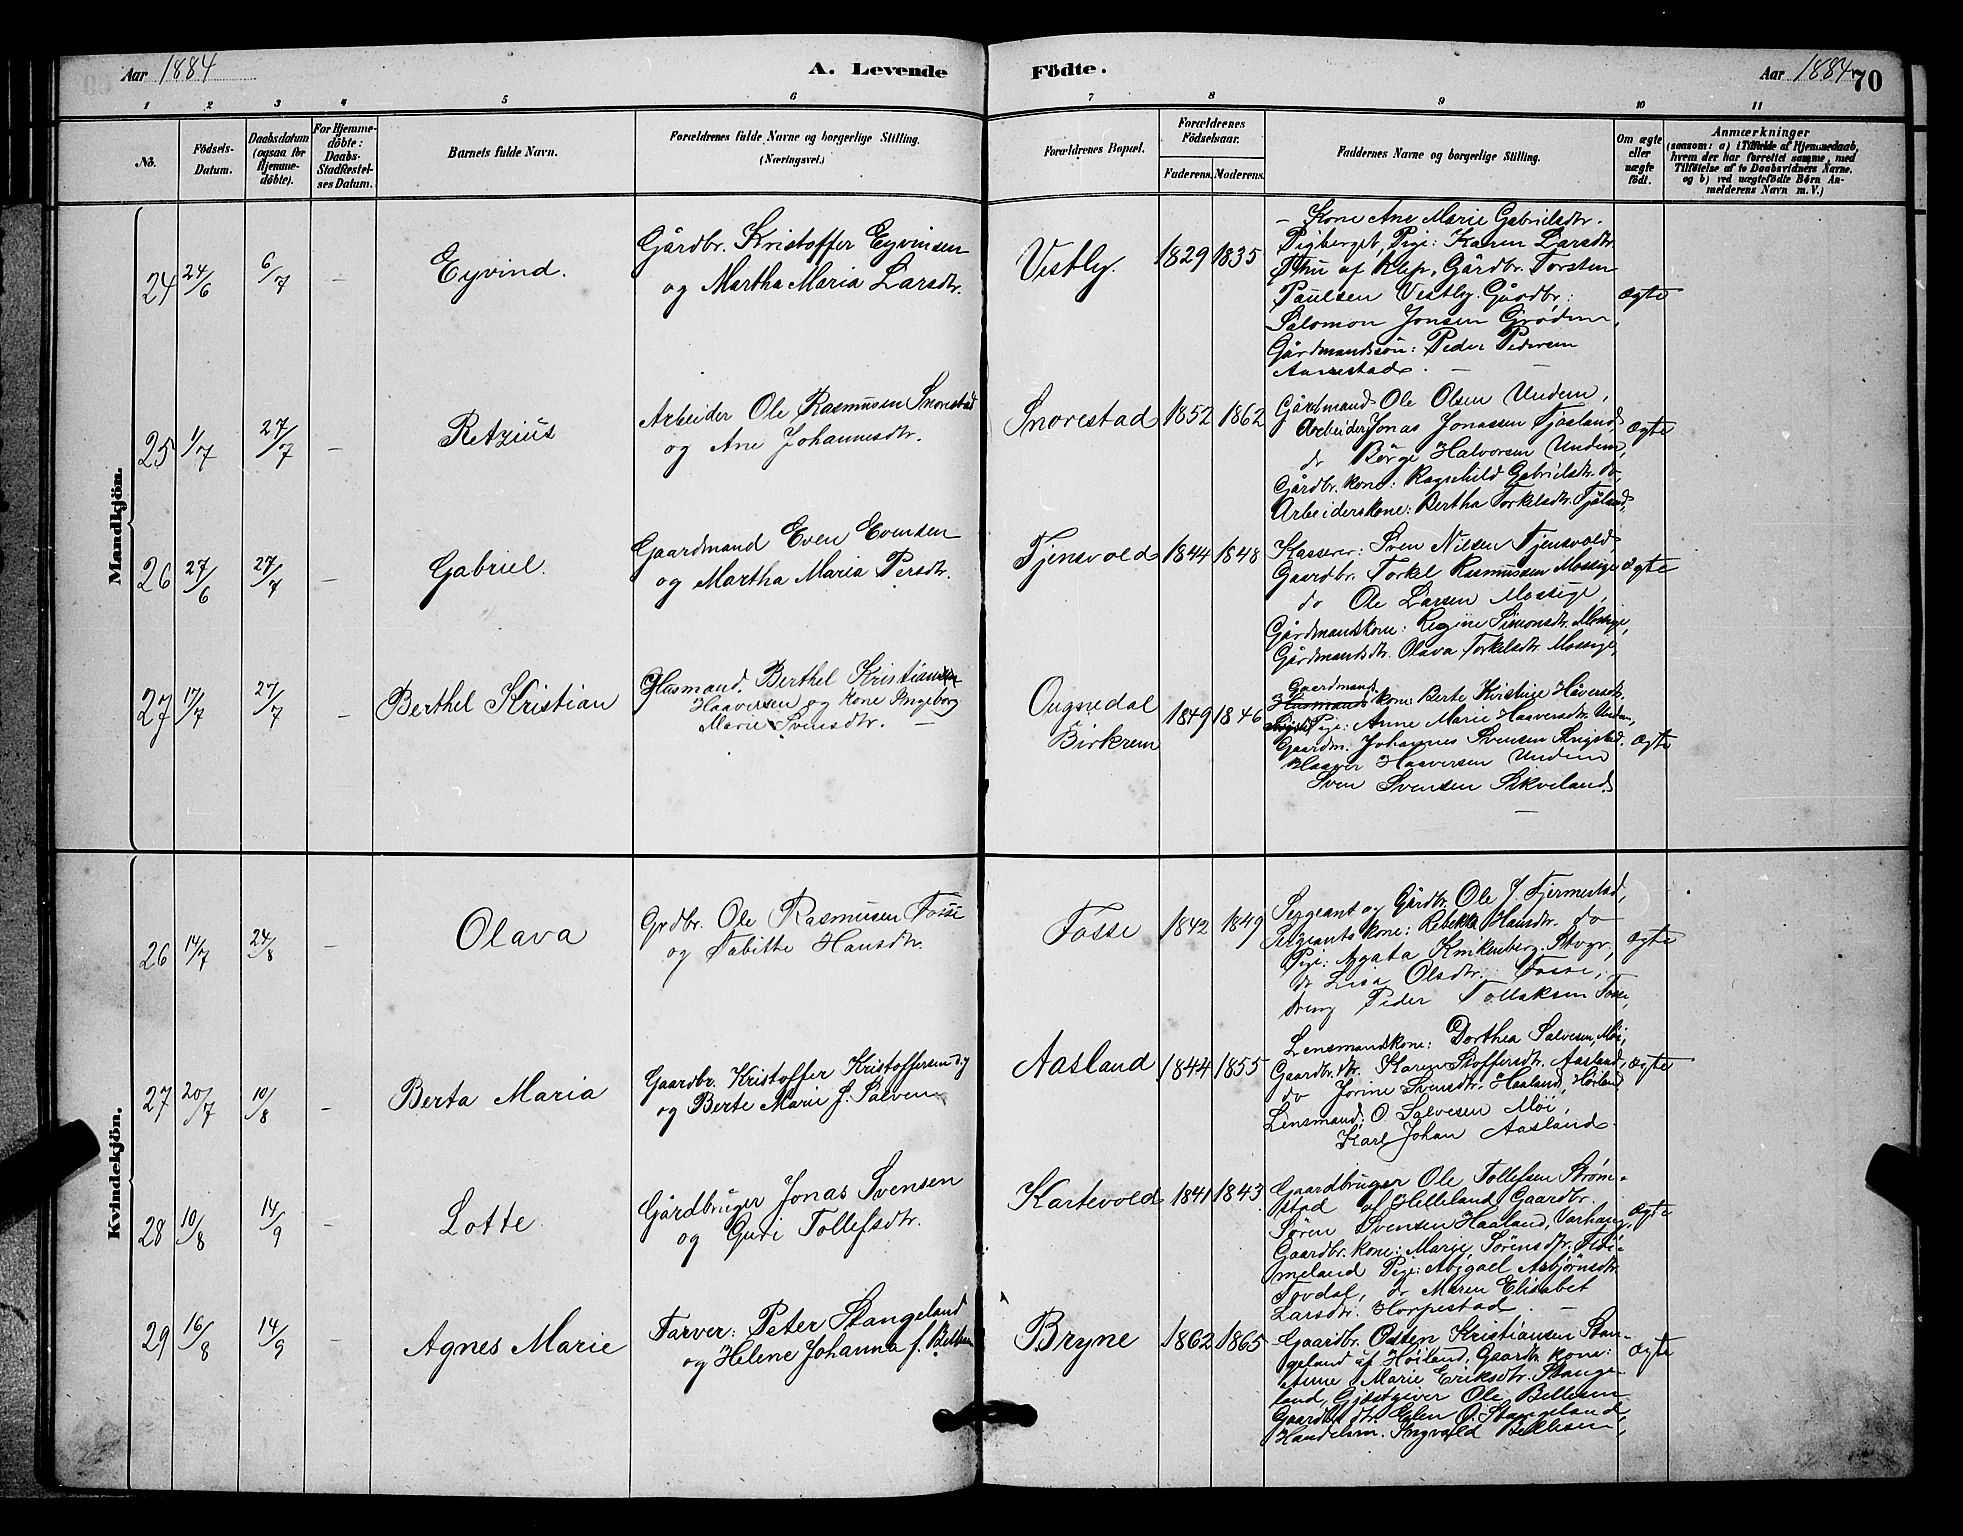 Aar 1884
A. Levende
Födte.
Aar 1884
70
1 2 3 4 5 6 7 8 9 10 11
No.
Födsels-
Datum.
Daabsdatum
(ogsaa for
Hjemme-
döbte).
For Hjemme-
döbte:
Daabs-
Stadfæstel-
ses Datum.
Barnets fulde Navn.
Forældrenes fulde Navne og borgerlige Stilling.
(Næringsvei.)
Forældrenes Bopæl.
Forældrenes
Födselsaar.
Faderens. Moderens.
Faddernes Navne og borgerlige Stilling.
Om ægte
eller
uægte
födt.
Anmærkninger
(saasom: a) i Tilfælde af Hjemmedaab,
hvem der har forrettet samme, med
Tilföielse af to Daabsvidners Navne,
og b) ved uægtefödte Börn An-
melderens Navn m. V.)
Mandkjön.
24 24/6 6/7 –
Eyvind.
Gårdbr. Kristoffer Eyvinsen
og Martha Maria Larsdtr.
Vestly. 1829 1835
– Kone Ane Marie Gabrielsdtr.
Pigberget, Pige: Karen Larsdtr.
Thu af Klep, Gårdbr. Torsten
Paulsen Vestly. Gårdbr:
Salomon Jonsen Grødem,
Gårdmandssön: Peder Pedersen
Aanestad. –
ægte
25 1/7 27/7 –
Retzius
Arbeider Ole Rasmusen Snorestad
og Ane Johannesdtr.
Snorestad 1852 1862
Gårdmand Ole Olsen Undem,
Arbeider Jonas Jonassen Tjåsland
do Börge Halvorsen Undem,
Gårdbr. kone: Ragnhild Gabrielsdtr. do,
Arbeiderskone: Bertha Torkelsdtr. Tjåland,
ægte
26 27/6 27/7 –
Gabriel.
Gaardmand Even Evensen
og Martha Maria Persdtr.
Tjensvold 1844 1848
Kasserer: Sven Nilsen Tjensvold,
Gaardbr. Torkel Rasmussen Mossige
do Ole Larsen Mossige,
Gårdmandskone: Regine Simonsdtr. Mossige,
Gårdmandsdtr. Olava Torkelsdtr Mossige,
ægte
27 17/7 27/7 –
Berthel Kristian
Husmand. Berthel Kristiansen
Haaversen og kone Ingeborg
Marie Svensdtr. –
Ougnedal
Birkrem
1849 1846
Gaardmands
Husmands kone: Berte Kristine Håversdtr.
Pige: Anne Marie Haaversdtr. Undem,
Gaardm. Johannes Svensen Årrestad.
Haaver Haaversen Undem
Sven Svensen Sikveland
–
ægte
Kvindekjön.
26 14/7 24/8 –
Olava
Grdbr. Ole Rasmusen Fosse
og Tabitte Hansdtr.
Fosse 1842 1849
Sergeant og Gårdbr. Ole J. Fjermestad,
Sergeants kone: Rebekka Hansdtr. do
Pige: Agata Knikenberg. Stvgr,
do Lisa Olsdtr. Fosse,
Dreng Peder Tollaksen Fosse,
ægte
27 20/7 10/8 –
Berta Maria
Gaardbr. Kristoffer Kristoffersen
og Berte Marie f. Salvesen
Aasland 1844 1855
Lensmandskone: Dorthea Salvesen, Möi,
Gaardbr. dtr. Karen Stoffersdtr. Aasland,
do Jorine Svensdtr. Haaland, Höiland
Lensmand: O Salvesen Möi,
Karl Johan Aasland.
ægte
28 10/8 14/9 –
Lotte
Gårdbruger Jonas Svensen
og Guri Tollefsdtr.
Kartevold 1841 1843
Gaardbruger Ole Tollefsen Ström-
stad af Helleland, Gaardbr.
Sören Svensen Haaland, Varhaug,
Gaardbr. kone: Marie Sörensdtr.
meland Pige: Abigael Asbjörnsdtr
Tovdal, do Maren Elisabet
Larsdtr. Horpestad. –
ægte
29 16/8 14/9 –
Agnes Marie
Farver: Peter Stangeland
og Helene Johanna f. Bellesen
Bryne 1862 1865
Gaardbr. Osten Kristiansen Stan-
geland af Höiland, Gaardbr. kone:
Anne Marie Eriksdtr. Stange-
land, Gjæstgiver Ole Bellesen
Gaardbr. dtr. Elen O. Stangeland,
Handelsm. Ingvald Bellesen,
ægte